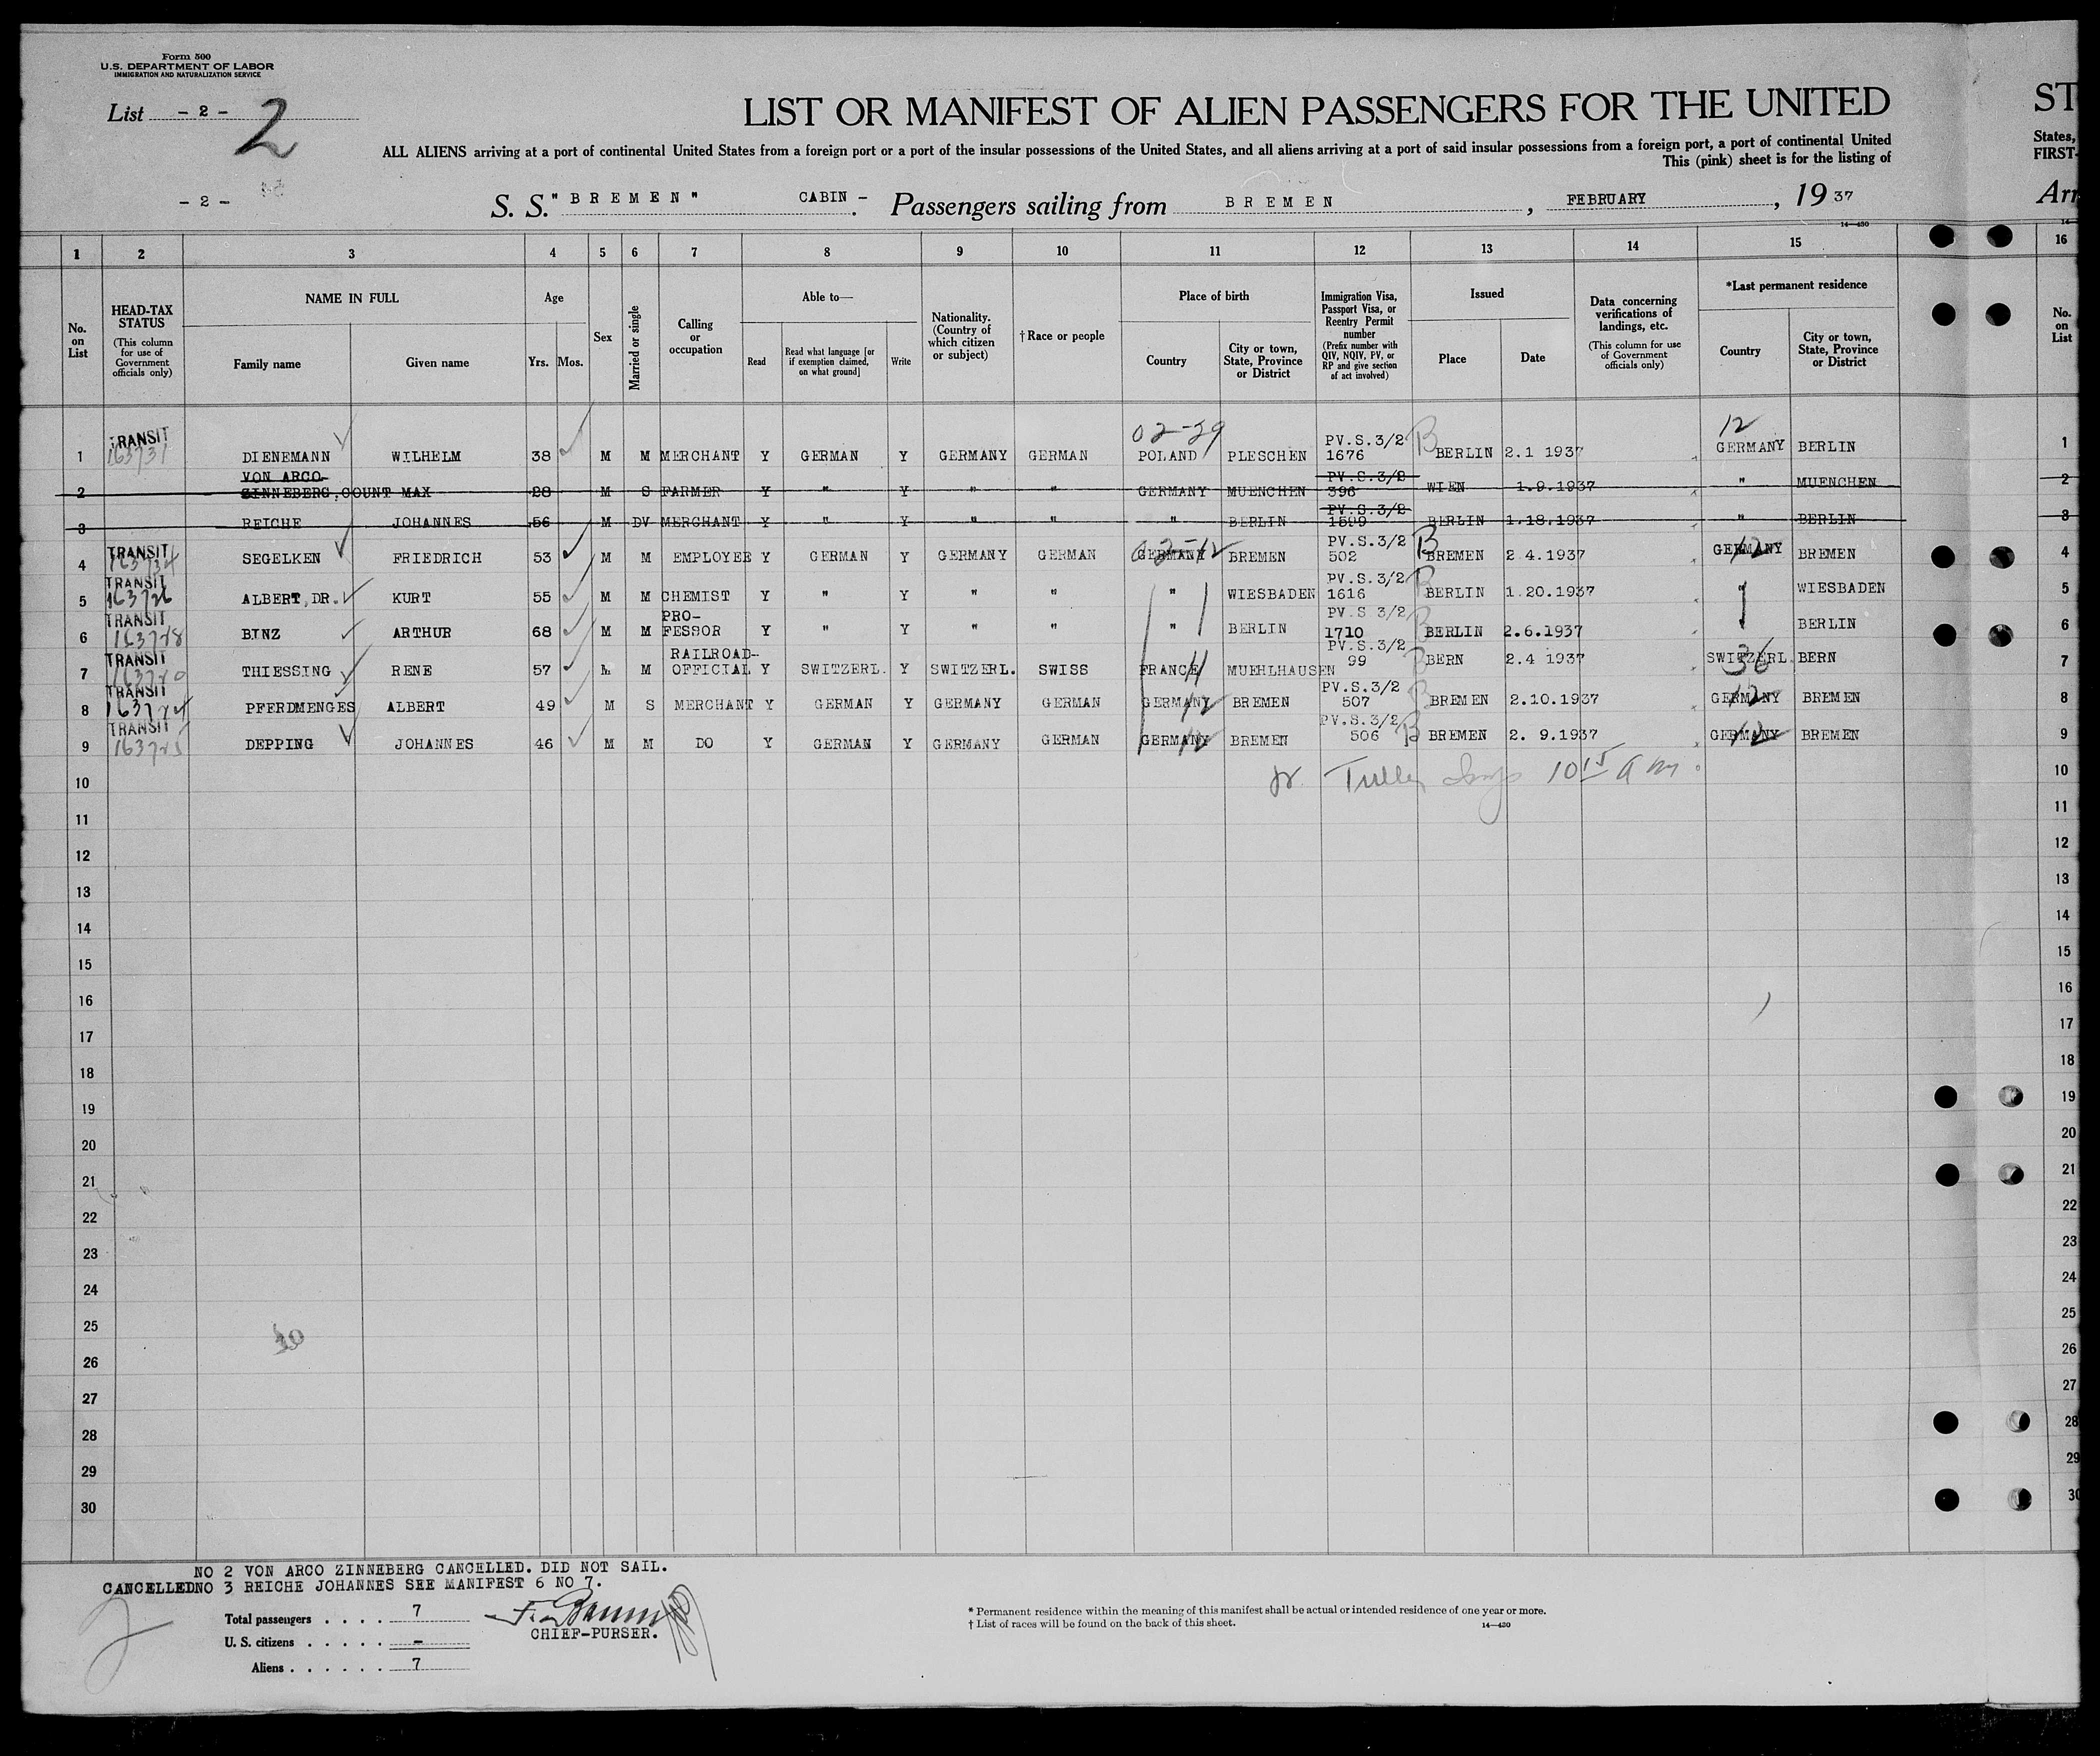 Form 500
U.S. DEPARTMENT OF LABOR
IMMIGRATION AND NATURALIZATION SERVICE
List - 2 -
2
LIST OR MANIFEST OF ALIEN PASSENGERS FOR THE UNITED
ST
ALL ALIENS arriving at a port of continental United States from a foreign port or a port of the insular possessions of the United States, and all aliens arriving at a port of said insular possessions from a foreign port, a port of continental United
States,
This (pink) sheet is for the listing of
FIRST-
- 2 -
S. S. "BREMEN" CABIN - Passengers sailing from BREMEN, FEBRUARY, 19 37
Arr
14—430
1 2 3 4 5 6 7 8 9 10 11 12 13 14 15 16
No. on List
HEAD-TAX STATUS
(This column for use of Government officials only)
NAME IN FULL
Family name
Given name
Age
Yrs. Mos.
Sex
Married or single
Calling or occupation
Able to—
Read
Read what language [or if exemption claimed, on what ground]
Write
Nationality. (Country of which citizen or subject)
† Race or people
Place of birth
Country
City or town, State, Province or District
Immigration Visa, Passport Visa, or Reentry Permit number
(Prefix number with QIV, NQIV, PV, or RP and give section of act involved)
Issued
Place
Date
Data concerning verifications of landings, etc.
(This column for use of Government officials only)
*Last permanent residence
Country
City or town, State, Province or District
No. on List
02-29
12
1 TRANSIT 163731 DIENEMANN WILHELM 38 M M MERCHANT Y GERMAN Y GERMANY GERMAN POLAND PLESCHEN PV.S.3/2 1676 B BERLIN 2.1 1937 GERMANY BERLIN 1
2 VON ARCO ZINNEBERG, COUNT MAX 28 M S FARMER Y " Y " " GERMANY MUENCHEN PV.S.3/2 396 WIEN 1.9.1937 " MUENCHEN 2
3 REICHE JOHANNES 56 M DV MERCHANT Y " Y " " " BERLIN PV.S.3/2 1599 BERLIN 1.18.1937 " BERLIN 3
4 TRANSIT SEGELKEN FRIEDRICH 53 M M EMPLOYEE Y GERMAN Y GERMANY GERMAN GERMANY 02-12 BREMEN PV.S.3/2 502 B BREMEN 2 4.1937 GERMANY 12 BREMEN 4
5 TRANSIT 163726 ALBERT, DR. KURT 55 M M CHEMIST Y " Y " " " WIESBADEN PV.S.3/2 1616 B BERLIN 1.20.1937 WIESBADEN 5
6 TRANSIT 163728 BINZ ARTHUR 68 M M PRO-FESSOR Y " Y " " " BERLIN PV.S 3/2 1710 B BERLIN 2.6.1937 BERLIN 6
7 TRANSIT THIESSING RENE 57 M M RAILROAD-OFFICIAL Y SWITZERL. Y SWITZERL. SWISS FRANCE 11 MUEHLHAUSEN PV.S.3/2 99 B BERN 2.4 1937 SWITZERL. 36 BERN 7
8 TRANSIT 163724 PFERDMENGES ALBERT 49 M S MERCHANT Y GERMAN Y GERMANY GERMAN GERMANY 12 BREMEN PV.S.3/2 507 B BREMEN 2.10.1937 GERMANY 12 BREMEN 8
9 TRANSIT 163725 DEPPING JOHANNES 46 M M DO Y GERMAN Y GERMANY GERMAN GERMANY 12 BREMEN PV.S.3/2 506 B BREMEN 2. 9.1937 GERMANY 12 BREMEN 9
10 10 15 a m. 10
11 11
12 12
13 13
14 14
15 15
16 16
17 17
18 18
19 19
20 20
21 21
22 22
23 23
24 24
25 25
26 26
27 27
28 28
29 29
30 30
NO 2 VON ARCO ZINNEBERG CANCELLED. DID NOT SAIL.
CANCELLED NO 3 REICHE JOHANNES SEE MANIFEST 6 NO 7.
2
Total passengers . . . . 7
U. S. citizens . . . . . -
Aliens . . . . . . 7
CHIEF-PURSER.
* Permanent residence within the meaning of this manifest shall be actual or intended residence of one year or more.
† List of races will be found on the back of this sheet.
14—430